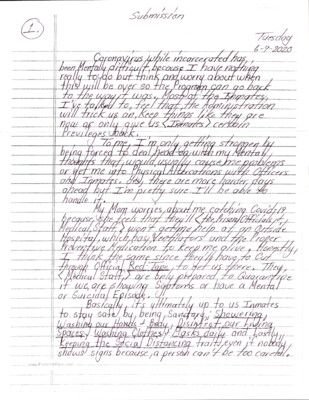 1.
Submission
Tuesday
6-9-2020
Coronavirus while incarcerated has
been Mentally difficult, because I have nothing
really to do but think and worry about when
this will be over so the Program can go back
to the way it was. Most of the Inmates
I've talked to, feel that the Administration
will trick us an, Keep things like they are
now or only give us (Inmates) certain
Previleges back.
To me, I'm only getting stronger by
being forced to deal with my Mental
thoughts that would usually cause me problems
or get me into Physical Altercations with Officers
and Inmates. There are more harder days
ahead but I'm pretty sure I'll be able to
handle it.
My Mom worries about me catching Covid-19
because she feels that they'll (the Prison Officials &
Medical Staff,) won't get me help at an Outside
Hospital, which has Ventilators and the Proper
Preventive Medication to keep me alive. Honestly,
I think the same since they'll have to Cut
through Official Red Tape to get us there. They
(Medical Staff) are only prepared to Quarantine
if we are showing Symptoms or have a Mental
or Suicidal Episode.
Basically, it's ultimately up to us Inmates
to stay safe by, being Sanitary, Showering,
Washing our Hands & Body, Disinfect our Living
Spaces, Washing Clothes & Masks daily and Lastly
Keeping the Social Distancing traits, even if nobody
shows signs because, a person can't be too careful.